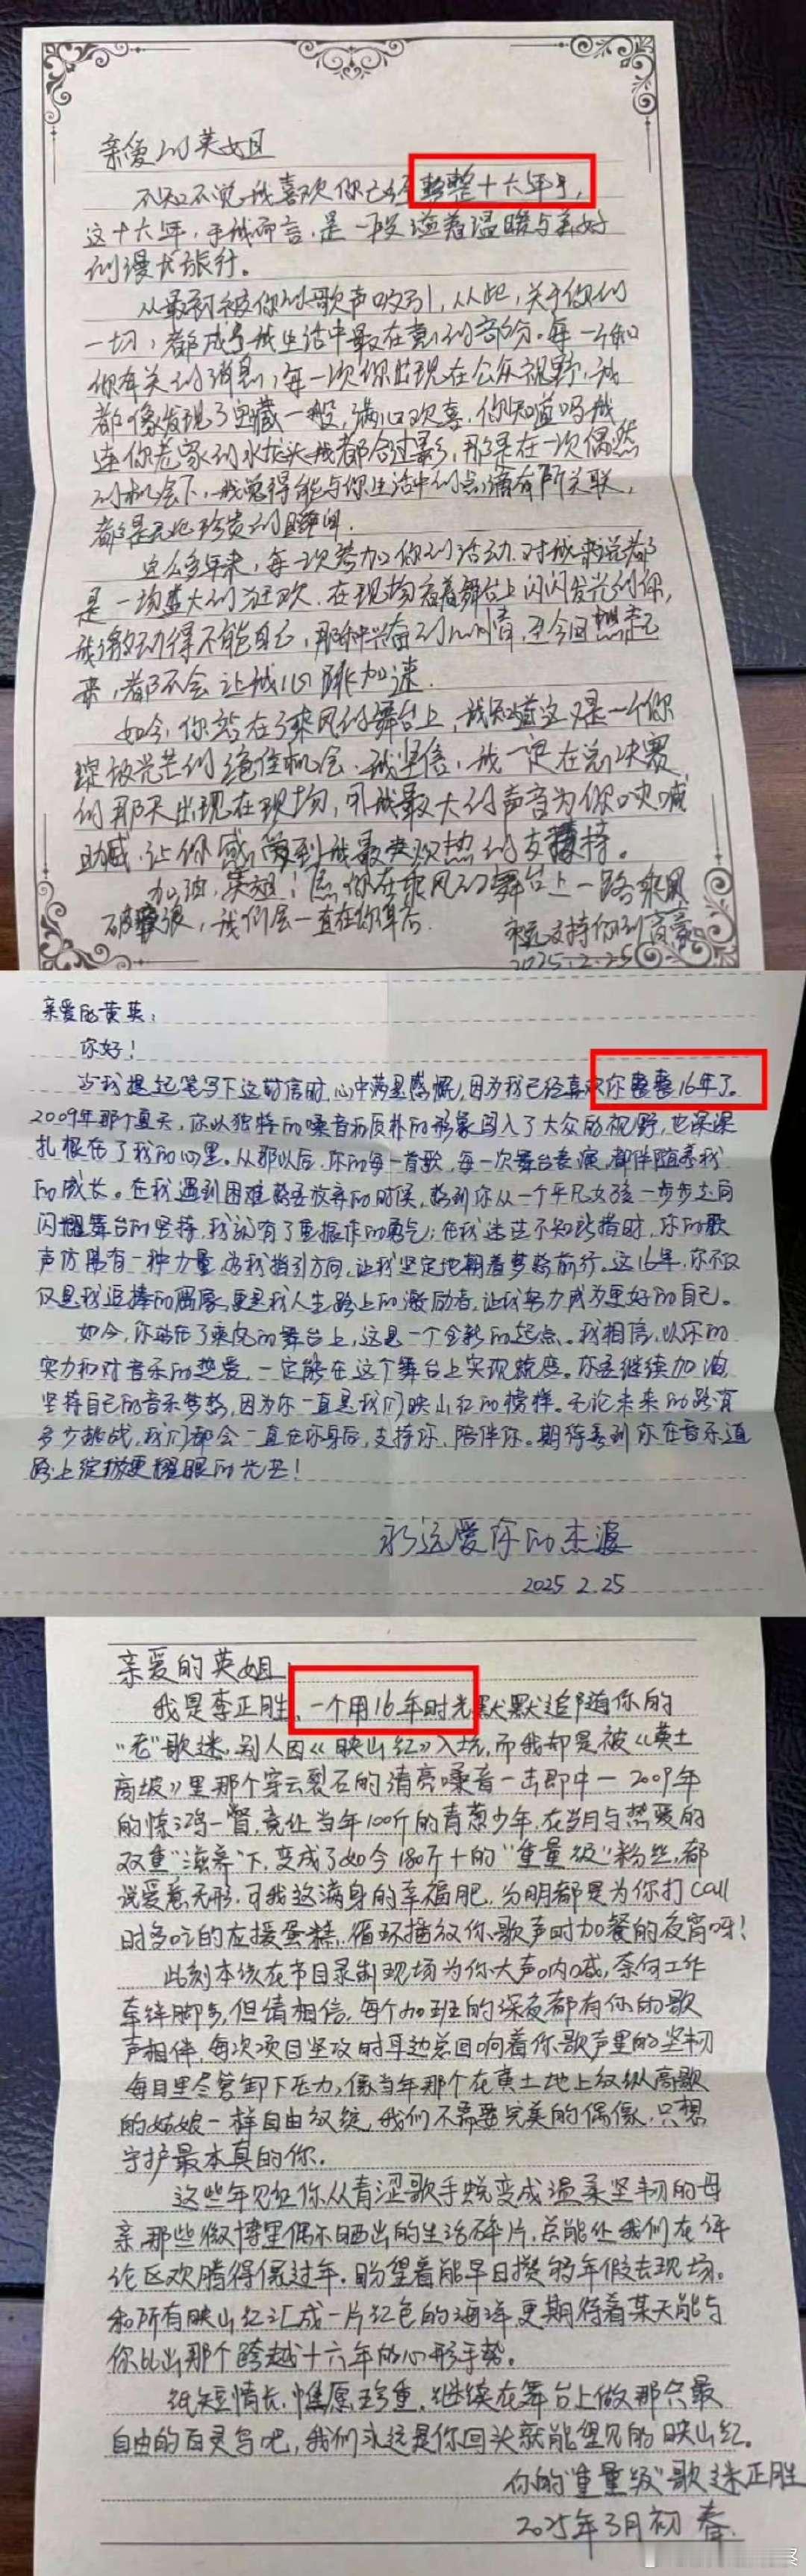 亲爱的英姐
不知不觉,我喜欢你已经整整十六年了,
这十六年,于我而言,是一段溢着温暖与美好
的漫长旅行。
从最初被你的歌声吸引,从此,关于你的
一切,都成了我生活中最在意的部分。每一个和
你有关的消息,每一次你出现在公众视野,我
都像发现了宝藏一般,满心欢喜,你知道吗我
连你老家的水龙头我都合过影,那是在一次偶然
的机会下,我觉得能与你生活中的点滴有所关联,
都是无比珍贵的瞬间.
这么多年来,每一次参加你的活动.对我来说都
是一场盛大的狂欢.在现场看着舞台上闪闪发光的你,
我激动得不能自己,那种兴奋的心情,至今回想起
来,都不会让我心跳加速.
如今,你站在了乘风的舞台上,我知道这又是一个你
绽放光芒的绝佳机会.我坚信,我一定在总决赛
的那天出现在现场,用我最大的声音为你呐喊
助威.让你感受到我最热的支持。
加油,英姐!愿你在乘风的舞台上一路乘风
破浪,我们会一直在你身后.
永远支持你的
2025.2.25
亲爱的黄英:
你好!
当我提起笔写下这封信时,心中满是感慨,因为我已经喜欢你整整16年了。
2009年那个夏天,你以独特的嗓音和质朴的形象闯入了大众的视野,也深深
扎根在了我的心里。从那以后,你的每一首歌,每一次舞台表演,都伴随着我
的成长。在我遇到困难想要放弃的时候,想到你从一个平凡女孩一步步走向
闪耀舞台的坚持,我就有了重振作的勇气;在我迷茫不知所措时,你的歌
声仿佛有一种力量,为我指引方向,让我坚定地朝着梦想前行。这16年,你不仅
仅是我追捧的偶像,更是我人生路上的激励者,让我努力成为更好的自己。
如今,你站在了乘风的舞台上,这是一个全新的起点。我相信,以你的
实力和对音乐的热爱,一定能在这个舞台上实现蜕变。你要继续加油,
坚持自己的音乐梦想,因为你一直是我们映山红的榜样。无论未来的路有
多少挑战,我们都会一直在你身后,支持你、陪伴你。期待看到你在音乐道
路上绽放更耀眼的光芒!
永远爱你的杰源
2025 2.25
亲爱的英姐:
我是李正胜、一个用16年时光默默追随你的
"老"歌迷,别人因《映山红》入坑,而我却是被《黄土
高坡》里那个穿云裂石的清亮嗓音一击即中一2009年
的惊鸿一瞥,竟让当年100斤的青葱少年,在岁月与热爱的
双重"滋养"下,变成了如今180斤+的"重量级"粉丝,都
说爱意无形,可我这满身的幸福肥,分明都是为你打call
时多吃的应援蛋糕,循环播放你歌声时加餐的夜宵呀!
此刻本该在节目录制现场为你大声呐喊,奈何工作
牵绊脚步,但请相信,每个加班的深夜都有你的歌
声相伴,每次项目坚攻时耳边总回响着你歌声里的坚韧
每日里尽管卸下压力,像当年那个在黄土地上放纵高歌
的姑娘一样自由绽放,我们不需要完美的偶像,只想
守护最本真的你.
这些年见证你从青涩歌手蜕变成温柔坚韧的母
亲,那些微博里偶尔晒出的生活碎片,总能让我们在评
论区欢腾得像过年.盼望着能早日攒够年假去现场。
和所有映山红汇成一片红色的海洋,更期待着某天能与
你比出那个跨越十六年的心形手势。
纸短情长,惟愿珍重,继续在舞台上做那只最
自由的百灵鸟吧,我们永远是你回头就能望见的映山红。
你的"重量级"歌迷正胜
2025年3月初春.